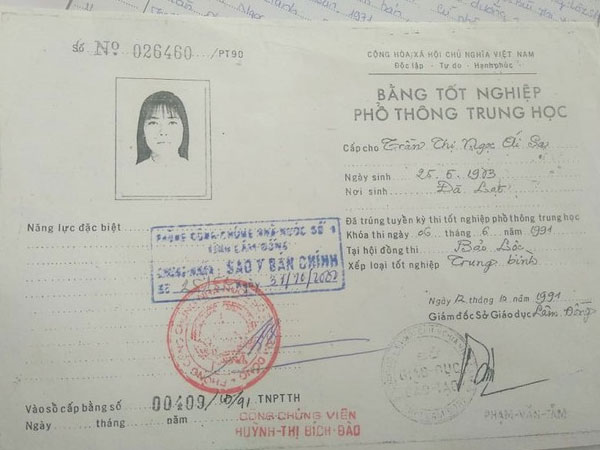 Số Nº 026460 /PT90
CỘNG HÒA XÃ HỘI CHỦ NGHĨA VIỆT NAM
Độc lập - Tự do - Hạnh phúc
BẰNG TỐT NGHIỆP
PHỔ THÔNG TRUNG HỌC
Cấp cho Trần Thị Ngọc Ái
Ngày sinh 25. 5. 1973
Nơi sinh Đà Lạt
Năng lực đặc biệt
Đã trúng tuyển kỳ thi tốt nghiệp phổ thông trung học
Khóa thi ngày 06 tháng 6 năm 1991
Tại hội đồng thi Bảo Lộc
Xếp loại tốt nghiệp Trung bình
PHÒNG CÔNG CHỨNG NHÀ NƯỚC SỐ
TỈNH LÂM ĐỒNG
CHỨNG NHẬN SAO Y BẢN CHÍNH
SỐ NGÀY 31/10/2002
Ngày 12 tháng 12 năm 1991
Giám đốc Sở Giáo dục Lâm Đồng
GIÁO DỤC
Vào sổ cấp bằng số 00409 /91 TNPTTH
Ngày tháng năm
CÔNG CHỨNG VIÊN
HUỲNH THỊ BÍCH ĐÀO
PHẠM VĂN TẤM